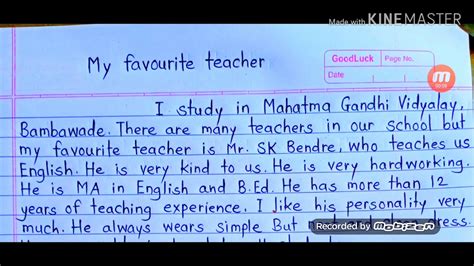 Made with KINEMASTER
My favourite teacher
GoodLuck Page No.
Date
I study in Mahatma Gandhi Vidyalay,
Bambawade. There are many teachers in our school but
my favourite teacher is Mr. SK Bendre, who teaches us
English. He is very kind to us. He is very hardworking.
He is MA in English and B.Ed. He has more than 12
years of teaching experience. I like his personality very
much. He always wears simple But dress.
Recorded by mobizen